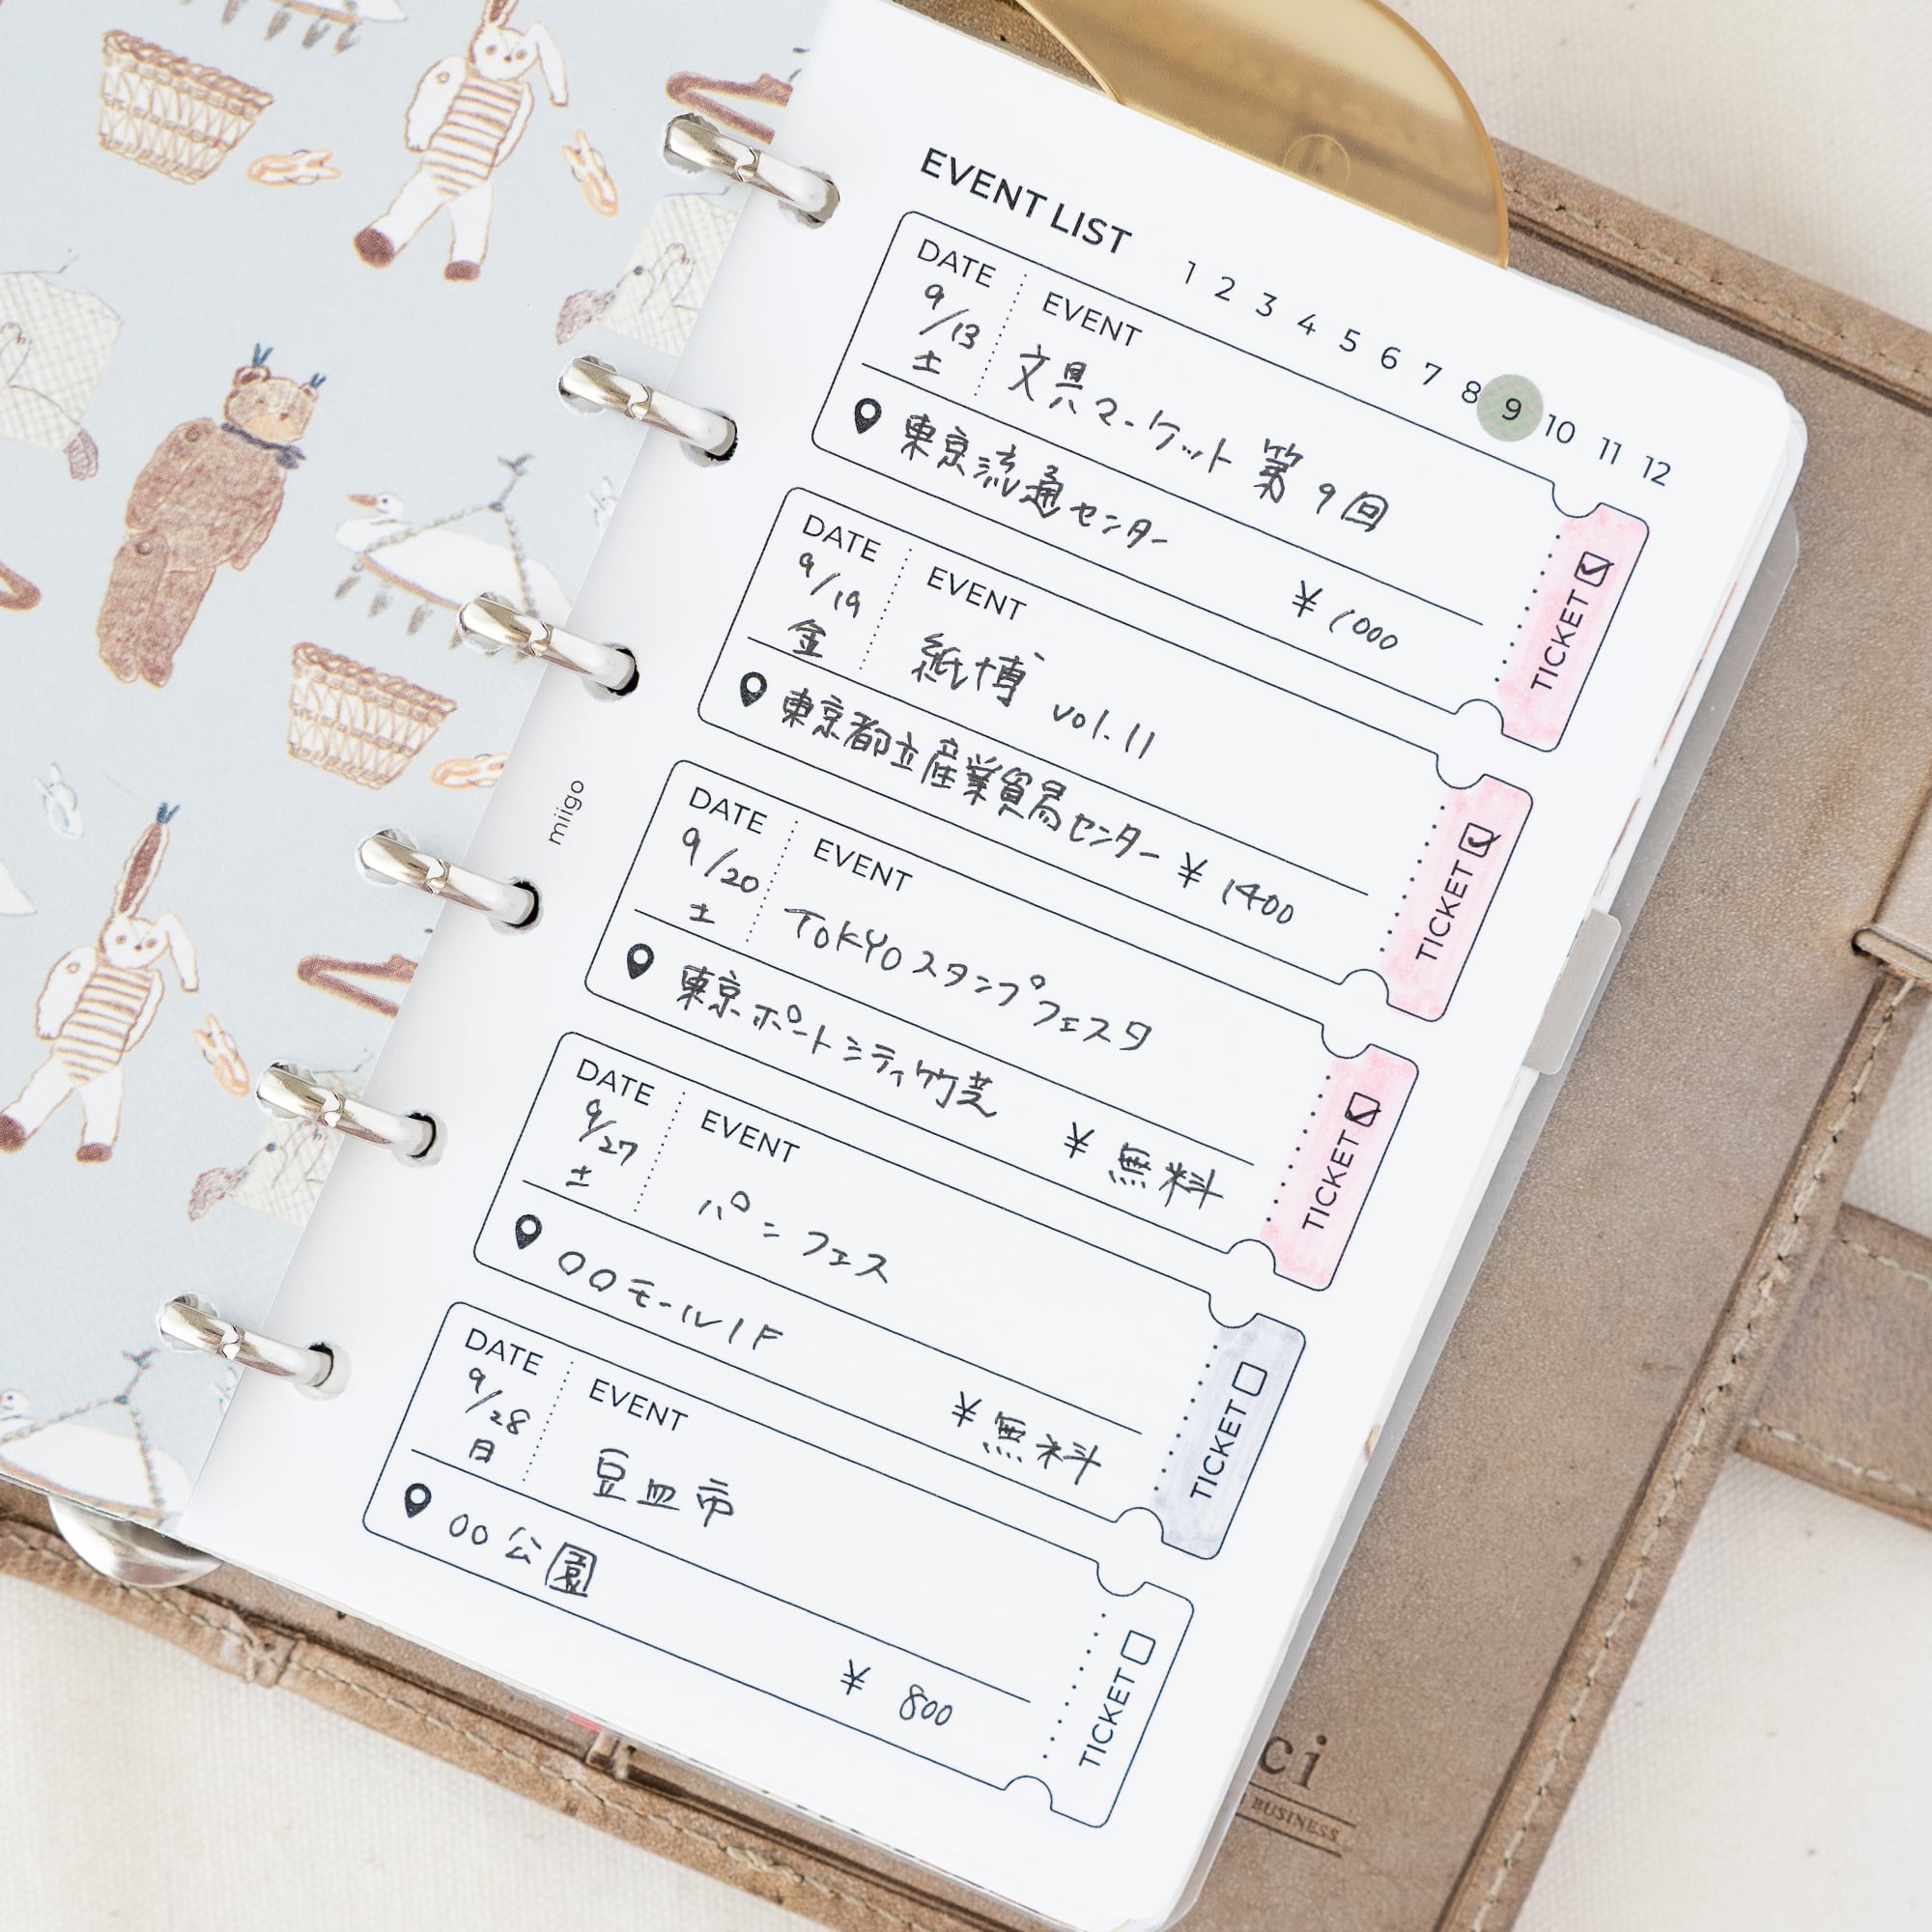 EVENT LIST
1 2 3 4 5 6 7 8 9 10 11 12
DATE
9/13
土
EVENT
文具マーケット 第9回
東京流通センター
¥ 1000
TICKET
DATE
9/19
金
EVENT
紙博 vol.11
東京都立産業貿易センター
¥ 1400
TICKET
DATE
9/20
土
EVENT
TOKYOスタンプフェスタ
東京ポートシティ竹芝
¥ 無料
TICKET
DATE
9/27
土
EVENT
パンフェス
〇〇モール1F
¥ 無料
TICKET
DATE
9/28
日
EVENT
豆皿市
〇〇公園
¥ 800
TICKET
miigo
ci
BUSINESS